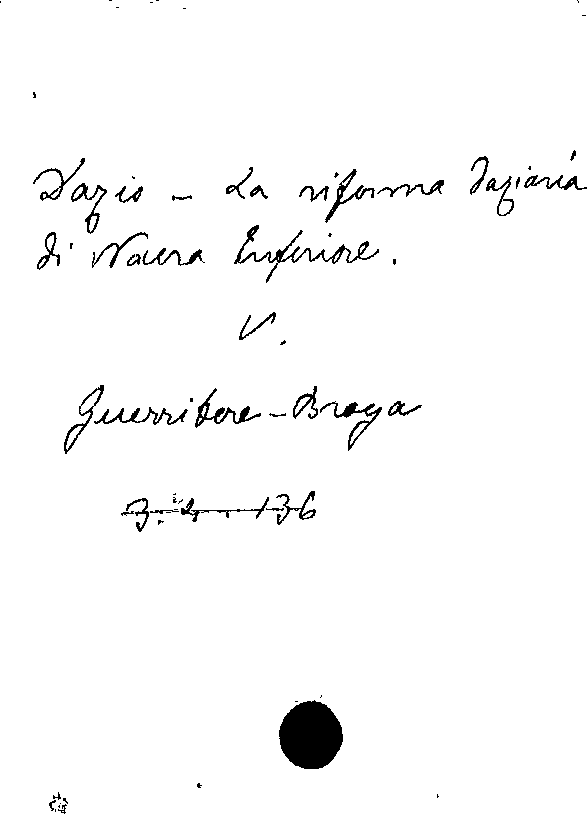 Dazio - La riforma daziaria
di Nocera Inferiore.
V.
Guerritore - Braga
3. 4. . 136